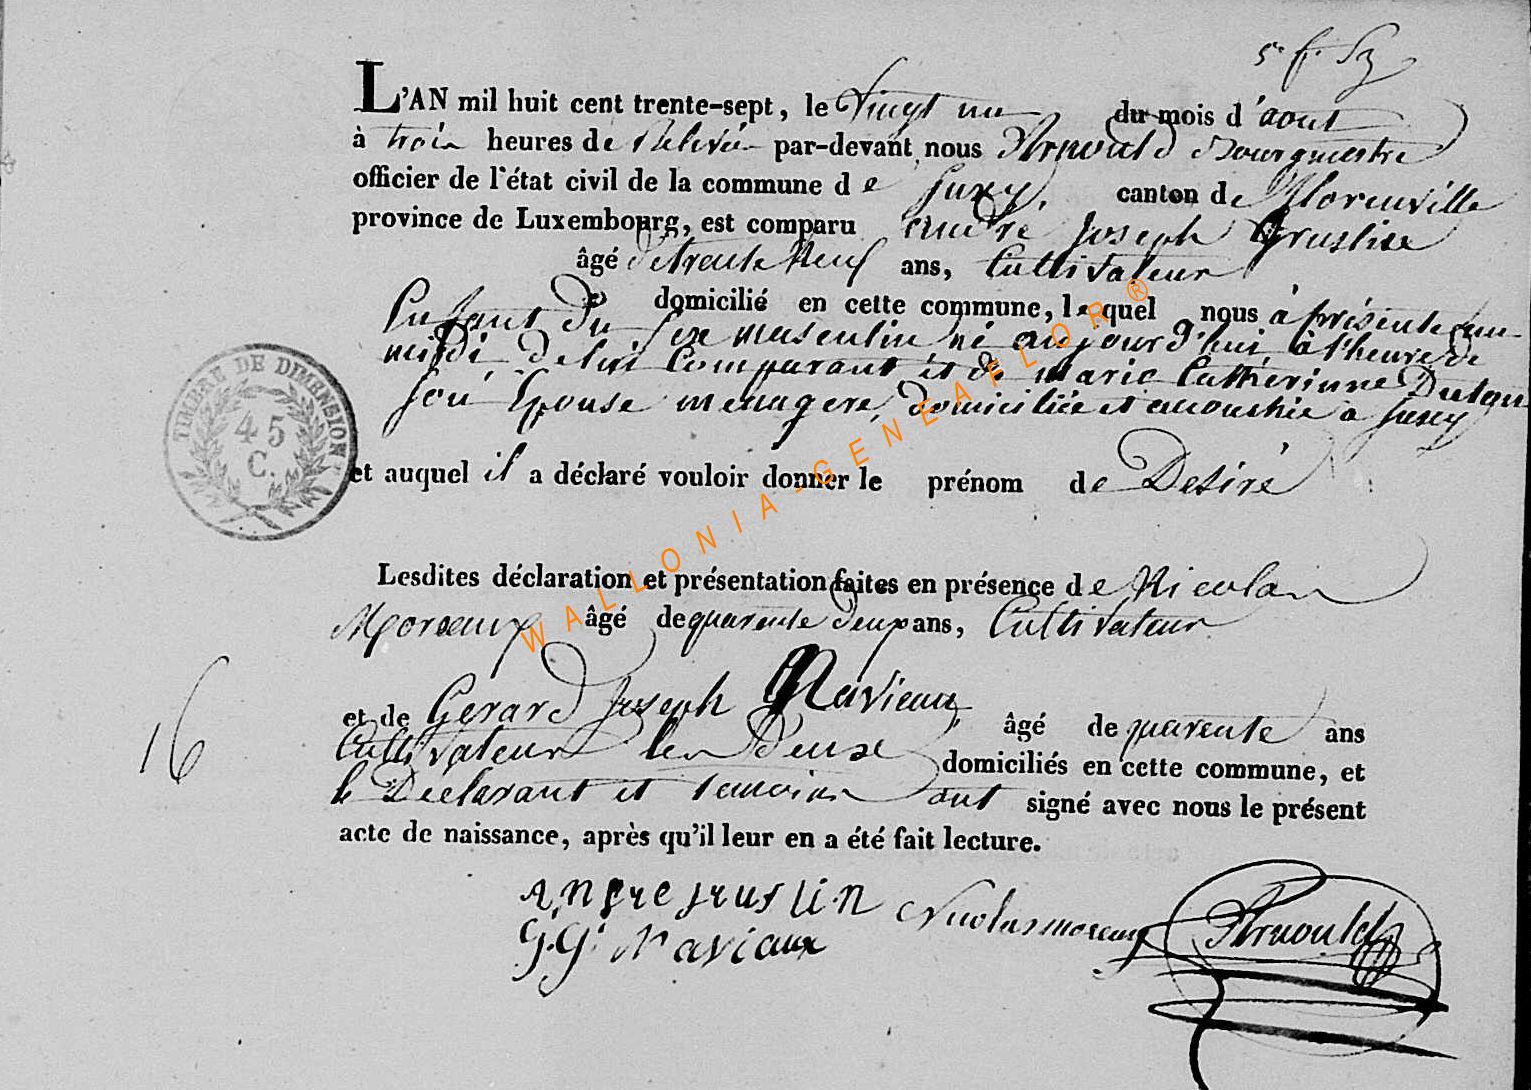 L'AN mil huit cent trente-sept, le Vingt un du mois d'aout
à trois heures de Relevée par-devant nous Arnould Bourgmestre
officier de l'état civil de la commune de Suxy, canton de Florenville
province de Luxembourg, est comparu andré Joseph Gruslin
âgé de trente Neuf ans, Cultivateur
domicilié en cette commune, lequel nous à présenté un
Enfant du sexe masculin né aujourd'hui à l'heure de
midi, de lui Comparant et de marie Catherinne
son Epouse menagere, domiciliée et accouchée a Suxy
et auquel il a déclaré vouloir donner le prénom de Desiré
Lesdites déclaration et présentation faites en présence de Nicolas
Moreaux âgé de quarente deux ans, Cultivateur
et de Gerard Joseph Naviaux âgé de quarente ans
Cultivateur les Deux domiciliés en cette commune, et
le Declarant et temoins ont signé avec nous le présent
acte de naissance, après qu'il leur en a été fait lecture.
16
TIMBRE DE DIMENSION
45
C.
ANDRE GRUSLIN Nicolas moreaux Arnould
G.G. Naviaux
WALLONIA-GENEAFLOR®